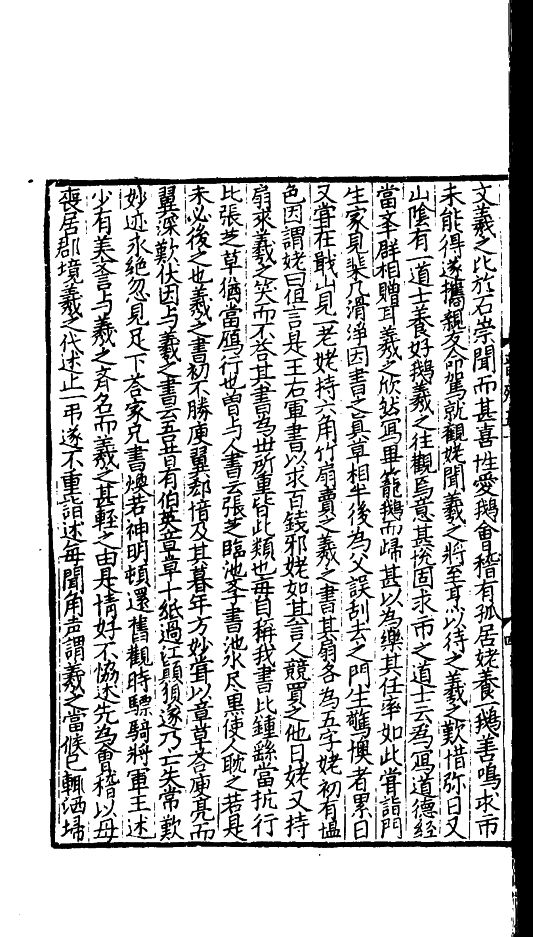 文羲之比於石崇聞而甚喜性愛鵝會稽有孤居姥養一鵝善鳴求市
未能得遂攜親友命駕就觀姥聞羲之將至烹以待之羲之歎惜弥日又
山陰有一道士養好鵝羲之往觀焉意甚悅固求市之道士云為寫道德經
當舉群相贈耳羲之欣然寫畢籠鵝而歸甚以為樂其任率如此嘗詣門
生家見棐几滑淨因書之真草相半後為父誤刮去之門生驚懊者累日
又嘗在戢山見一老姥持六角竹扇賣之羲之書其扇各為五字姥初有慍
色因謂姥曰但言是王右軍書以求百錢邪姥如其言人競買之他日姥又持
扇來羲之笑而不荅其書為世所重皆此類也每自稱我書比鍾繇當抗行
比張芝草猶當鴈行也曽与人書云張芝臨池學書池水尽黒使人耽之若是
未必後之也羲之書初不勝庾翼郄愔及其暮年方妙嘗以章草荅庾亮而
翼深歎伏因与羲之書云吾昔有伯英章草十紙過江顛狽遂乃亡失常歎
妙迹永絶忽見足下荅家兄書煥若神明頓還舊觀時驃騎將軍王述
少有美名与羲之齊名而羲之甚輕之由是情好不恊述先為會稽以母
喪居郡境羲之代述止一弔遂不重詣述每聞角声謂羲之當候己輒洒埽